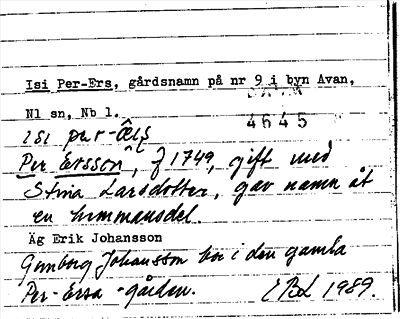 Isi Per-Ers, gårdsnamn på nr 9 i byn Avan,
Nl sn, Nb l.
4645
isi
Per Ersson, f 1749, gift med
Stina Larsdotter, gav namn åt
en hemmansdel.
Äg Erik Johansson
Gunborg Johansson bor i den gamla
Per-Ersa-gården. EBL 1989.